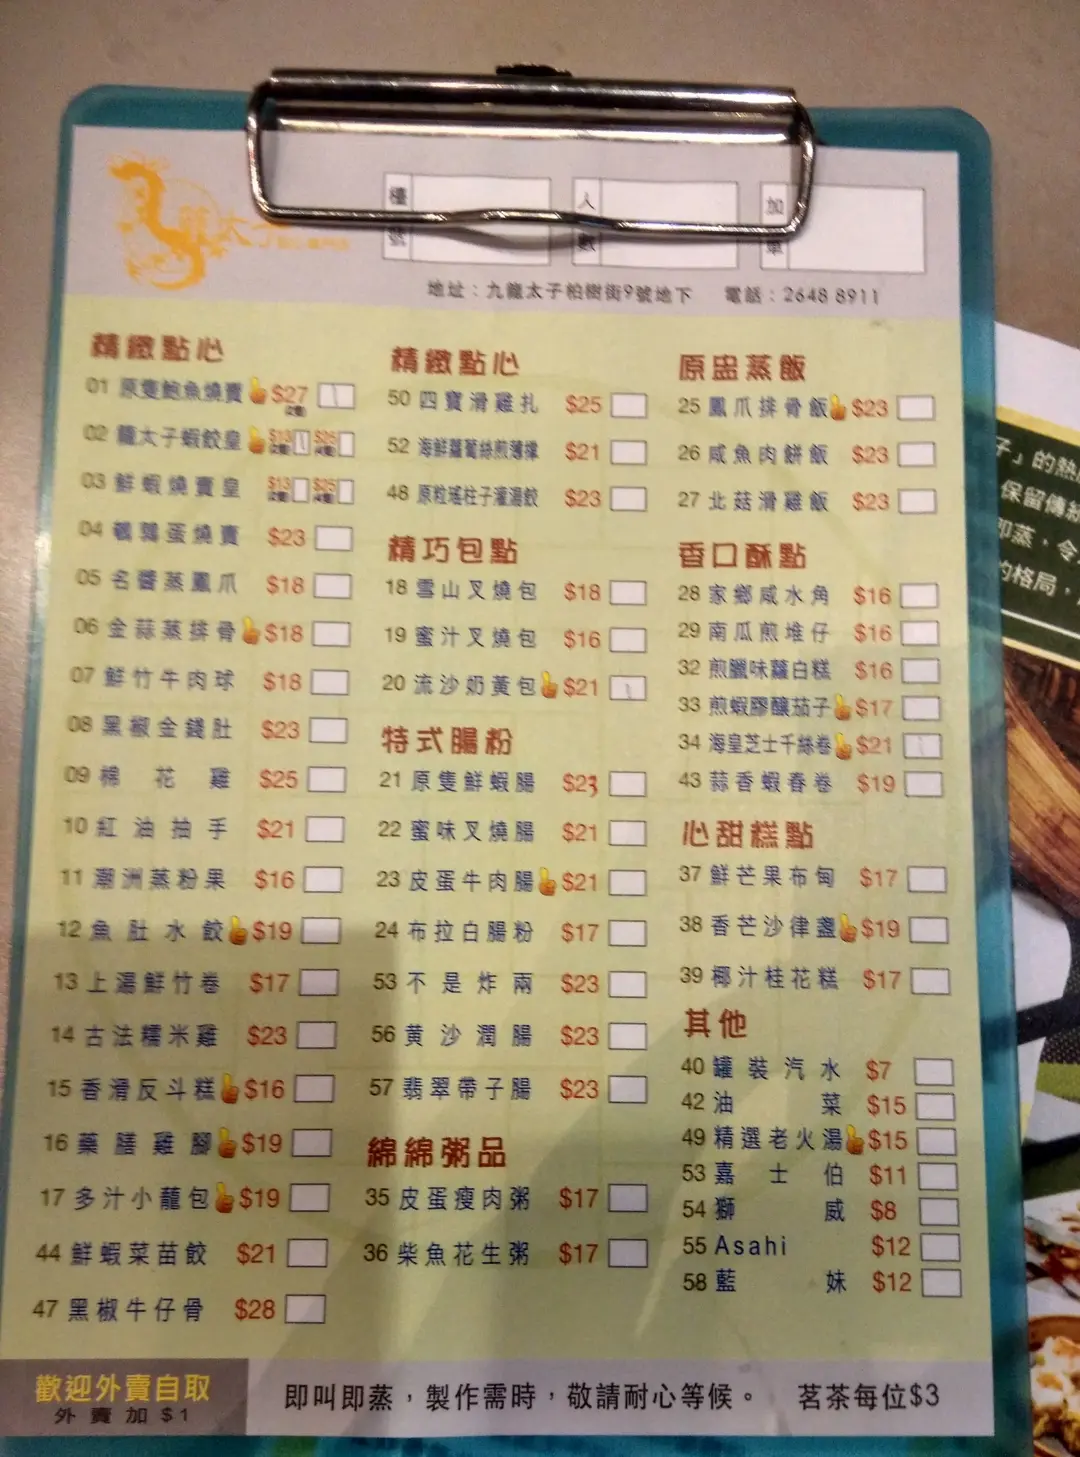 龍太子
檯號
人數
加單
地址：九龍太子柏樹街9號地下 電話：2648 8911
精緻點心
01 原隻鮑魚燒賣 $27
02 龍太子蝦餃皇 $13 $25
03 鮮蝦燒賣皇 $13 $25
04 鵪鶉蛋燒賣 $23
05 名醬蒸鳳爪 $18
06 金蒜蒸排骨 $18
07 鮮竹牛肉球 $18
08 黑椒金錢肚 $23
09 棉花雞 $25
10 紅油抽手 $21
11 潮洲蒸粉果 $16
12 魚肚水餃 $19
13 上湯鮮竹卷 $17
14 古法糯米雞 $23
15 香滑反斗糕 $16
16 藥膳雞腳 $19
17 多汁小蘢包 $19
44 鮮蝦菜苗餃 $21
47 黑椒牛仔骨 $28
精緻點心
50 四寶滑雞扎 $25
52 海鮮蘿蔔絲煎薄撐 $21
48 原粒瑤柱子灌湯餃 $23
精巧包點
18 雪山叉燒包 $18
19 蜜汁叉燒包 $16
20 流沙奶黃包 $21
特式腸粉
21 原隻鮮蝦腸 $23
22 蜜味叉燒腸 $21
23 皮蛋牛肉腸 $21
24 布拉白腸粉 $17
53 不是炸兩 $23
56 黄沙潤腸 $23
57 翡翠帶子腸 $23
綿綿粥品
35 皮蛋瘦肉粥 $17
36 柴魚花生粥 $17
原盅蒸飯
25 鳳爪排骨飯 $23
26 咸魚肉餅飯 $23
27 北菇滑雞飯 $23
香口酥點
28 家鄉咸水角 $16
29 南瓜煎堆仔 $16
32 煎臘味蘿白糕 $16
33 煎蝦膠釀茄子 $17
34 海皇芝士千絲卷 $21
43 蒜香蝦春卷 $19
心甜糕點
37 鮮芒果布甸 $17
38 香芒沙律盞 $19
39 椰汁桂花糕 $17
其他
40 罐裝汽水 $7
42 油菜 $15
49 精選老火湯 $15
53 嘉士伯 $11
54 獅威 $8
55 Asahi $12
58 藍妹 $12
歡迎外賣自取
外賣加$1
即叫即蒸，製作需時，敬請耐心等候。 茗茶每位$3
子」的熱
保留傳統
即蒸，令
的格局，